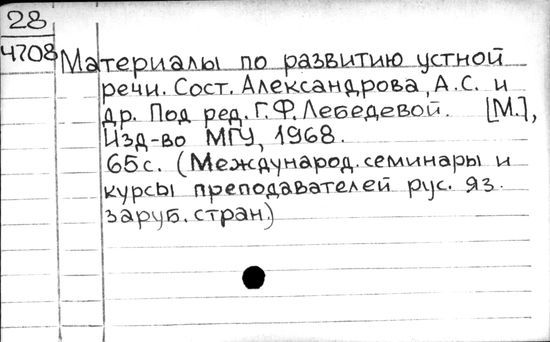 28
4708 Материалы по развитию устной
речи. Сост. Александрова, А.С. и
др. Под ред. Г.Ф. Лебедевой. [М.],
Изд-во МГУ, 1968.
65с. (Международ. семинары и
курсы преподавателей рус. яз.
заруб. стран.)